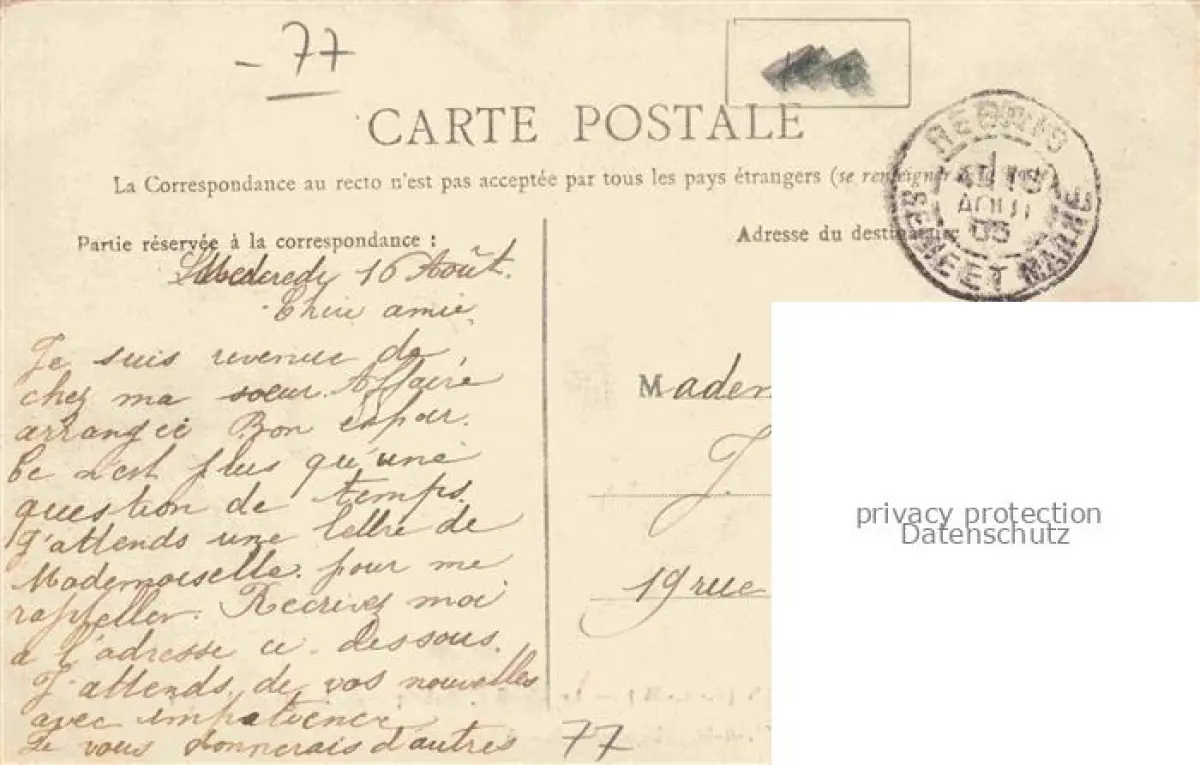 - 77
CARTE POSTALE
La Correspondance au recto n'est pas acceptée par tous les pays étrangers (se renseigner à la
REBAIS
16
AOUT
05
SEINE ET MARNE
Partie réservée à la correspondance :
Adresse du destinataire
Mercredi 16 Août.
Chère amie,
Je suis revenue de
chez ma soeur. Affaire
arrangée Bon espoir.
Ce n'est plus qu'une
question de temps.
J'attends une lettre de
Mademoiselle pour me
rappeller. Récrivez moi
a l'adresse ci-dessous.
J'attends de vos nouvelles
avec impatience
Je vous donnerais d'autres
Madem
J.
19 rue
77
privacy protection
Datenschutz